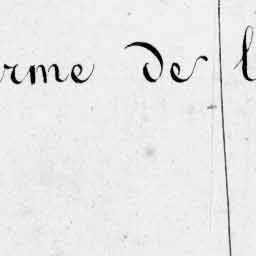 rme de l